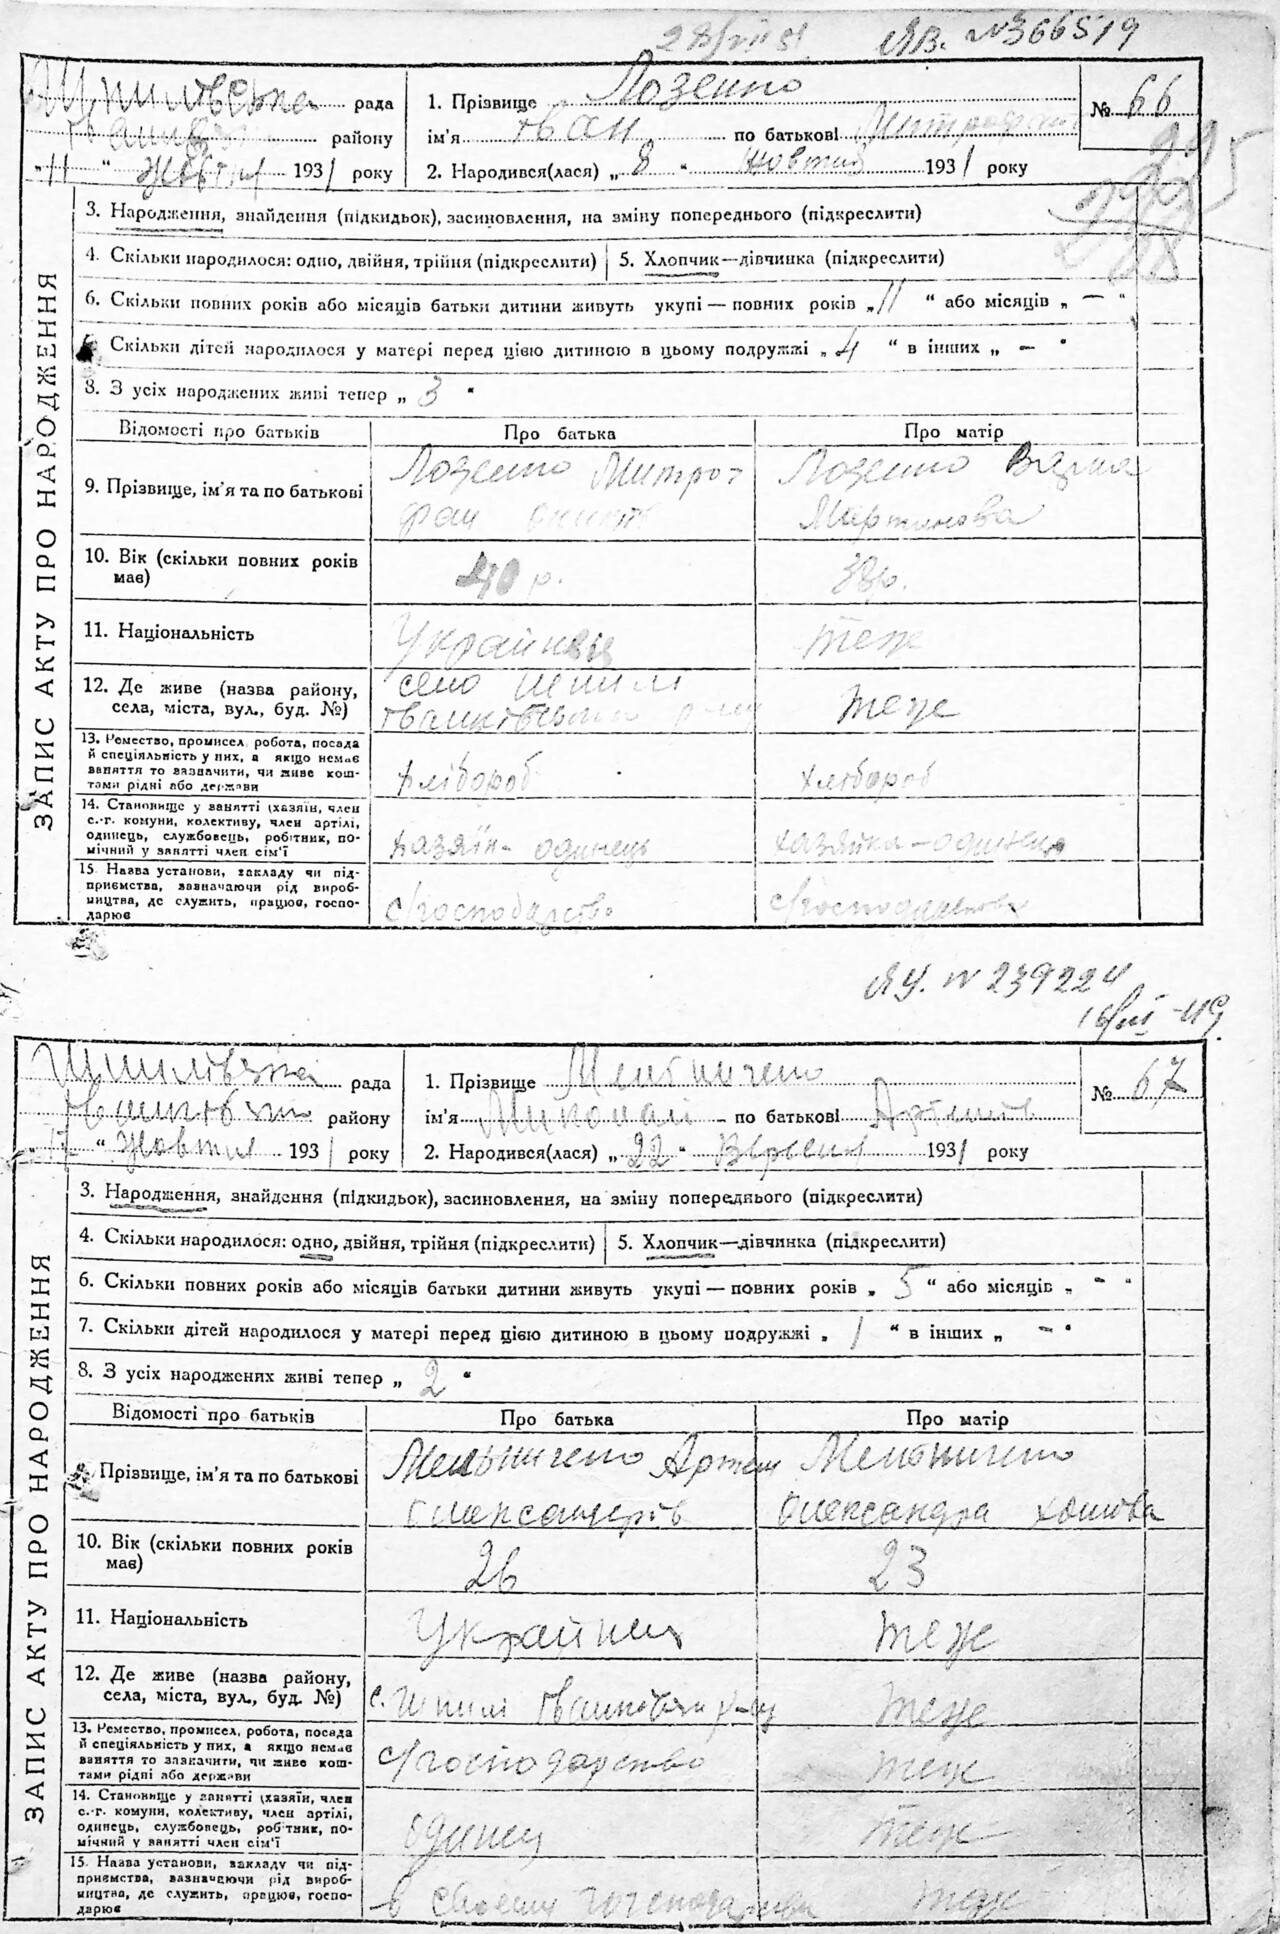 28/VII 51 ЯВ. №366519
Шпилівська рада
Іванківськ району
"11" Жовтня 1931 року
1. Прізвище Лозенко
ім'я Іван по батькові Митрофан
2. Народився(лася) „8" жовтня 1931 року
№ 66
295
3. Народження, знайдення (підкидьок), засиновлення, на зміну попереднього (підкреслити)
4. Скільки народилося: одно, двійня, трійня (підкреслити) 5. Хлопчик—дівчинка (підкреслити)
6. Скільки повних років або місяців батьки дитини живуть укупі — повних років „11" або місяців „—"
Скільки дітей народилося у матері перед цією дитиною в цьому подружжі „4" в інших „—"
8. З усіх народжених живі тепер „3"
ЗАПИС АКТУ ПРО НАРОДЖЕННЯ
Відомості про батьків Про батька Про матір
9. Прізвище, ім'я та по батькові Лозенко Митро- Лозенко
фан Мартинова
10. Вік (скільки повних років має) 40 р. 38р.
11. Національність Українец теж
12. Де живе (назва району, село Шпилі теже
села, міста, вул., буд. №) Іванківськи
13. Ремество, промисел, робота, посада
й спеціяльність у них, а якщо немає
заняття то зазначити, чи живе кош-
тами рідні або держави хлібороб хлібороб
14. Становище у занятті (хазяїн, член
с.-г. комуни, колективу, член артілі,
одинець, службовець, робітник, по-
мічний у занятті член сім'ї хазяїн-одинець хазяйка-одинец
15. Назва установи, закладу чи під-
приємства, зазначаючи рід вироб-
ництва, де служить, працює, госпо-
дарює с/господарство с/господарство
ЯУ. № 239224
16/III-49
Шпилівська рада
Іванківськ району
17 " Жовтня 1931 року
1. Прізвище Мельниченко
ім'я Миколай по батькові Артемів
2. Народився(лася) „22" Вересня 1931 року
№ 67
3. Народження, знайдення (підкидьок), засиновлення, на зміну попереднього (підкреслити)
4. Скільки народилося: одно, двійня, трійня (підкреслити) 5. Хлопчик—дівчинка (підкреслити)
6. Скільки повних років або місяців батьки дитини живуть укупі — повних років „5" або місяців „—"
7. Скільки дітей народилося у матері перед цією дитиною в цьому подружжі „1" в інших „—"
8. З усіх народжених живі тепер „2"
ЗАПИС АКТУ ПРО НАРОДЖЕННЯ
Відомості про батьків Про батька Про матір
Прізвище, ім'я та по батькові Мельниченко Артем Мельниченко
Олександрів Олександра
10. Вік (скільки повних років має) 26 23
11. Національність Українец теж
12. Де живе (назва району,
села, міста, вул., буд. №) с. Шпилі Іванківськи р-ну теже
13. Ремество, промисел, робота, посада
й спеціяльність у них, а якщо немає
заняття то зазначити, чи живе кош-
тами рідні або держави с/господарство теж
14. Становище у занятті (хазяїн, член
с.-г. комуни, колективу, член артілі,
одинець, службовець, робітник, по-
мічний у занятті член сім'ї одинец теж
15. Назва установи, закладу чи під-
приємства, зазначаючи рід вироб-
ництва, де служить, працює, госпо-
дарює в своєму господарстві теж